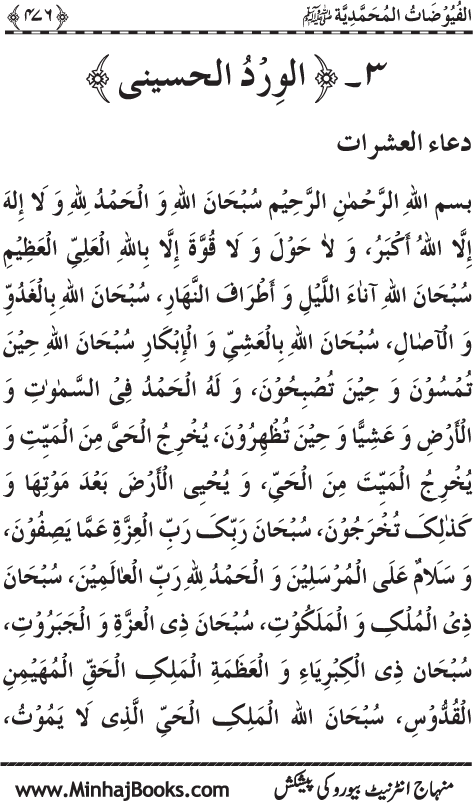 الفُيُوْضَاتُ المُحَمَّدِيَّة ﷺ ﴿۴۷۶﴾
۳۔ ﴿ الوِرْدُ الحسینی ﴾
دعاء العشرات
بسم اللهِ الرَّحْمٰنِ الرَّحِيْمِ سُبْحَانَ اللهِ وَ الْحَمْدُ لِلّٰهِ وَ لَا إِلٰهَ
إِلَّا اللهُ أَكْبَرُ، وَ لَا حَوْلَ وَ لَا قُوَّةَ إِلَّا بِاللهِ الْعَلِيِّ الْعَظِيْمِ
سُبْحَانَ اللهِ آنَاءَ اللَّيْلِ وَ أَطْرَافَ النَّهَارِ، سُبْحَانَ اللهِ بِالْغَدُوِّ
وَ الْآصَالِ، سُبْحَانَ اللهِ بِالْعَشِيِّ وَ الْإِبْكَارِ سُبْحَانَ اللهِ حِيْنَ
تُمْسُوْنَ وَ حِيْنَ تُصْبِحُوْنَ، وَ لَهُ الْحَمْدُ فِيْ السَّمٰوٰتِ وَ
الْأَرْضِ وَ عَشِيًّا وَ حِيْنَ تُظْهِرُوْنَ، يُخْرِجُ الْحَيَّ مِنَ الْمَيِّتِ وَ
يُخْرِجُ الْمَيِّتَ مِنَ الْحَيِّ، وَ يُحْيِي الْأَرْضَ بَعْدَ مَوْتِهَا وَ
كَذٰلِكَ تُخْرَجُوْنَ، سُبْحَانَ رَبِّكَ رَبِّ الْعِزَّةِ عَمَّا يَصِفُوْنَ،
وَ سَلَامٌ عَلَى الْمُرْسَلِيْنَ وَ الْحَمْدُ لِلّٰهِ رَبِّ الْعَالَمِيْنَ، سُبْحَانَ
ذِيْ الْمُلْكِ وَ الْمَلَكُوْتِ، سُبْحَانَ ذِي الْعِزَّةِ وَ الْجَبَرُوْتِ،
سُبْحَانَ ذِي الْكِبْرِيَاءِ وَ الْعَظَمَةِ الْمَلِكِ الْحَقِّ الْمُهَيْمِنِ
الْقُدُّوْسِ، سُبْحَانَ الله الْمَلِكِ الْحَيِّ الَّذِي لَا يَمُوْتُ،
منہاج انٹرنیٹ بیورو کی پیشکش www.MinhajBooks.com